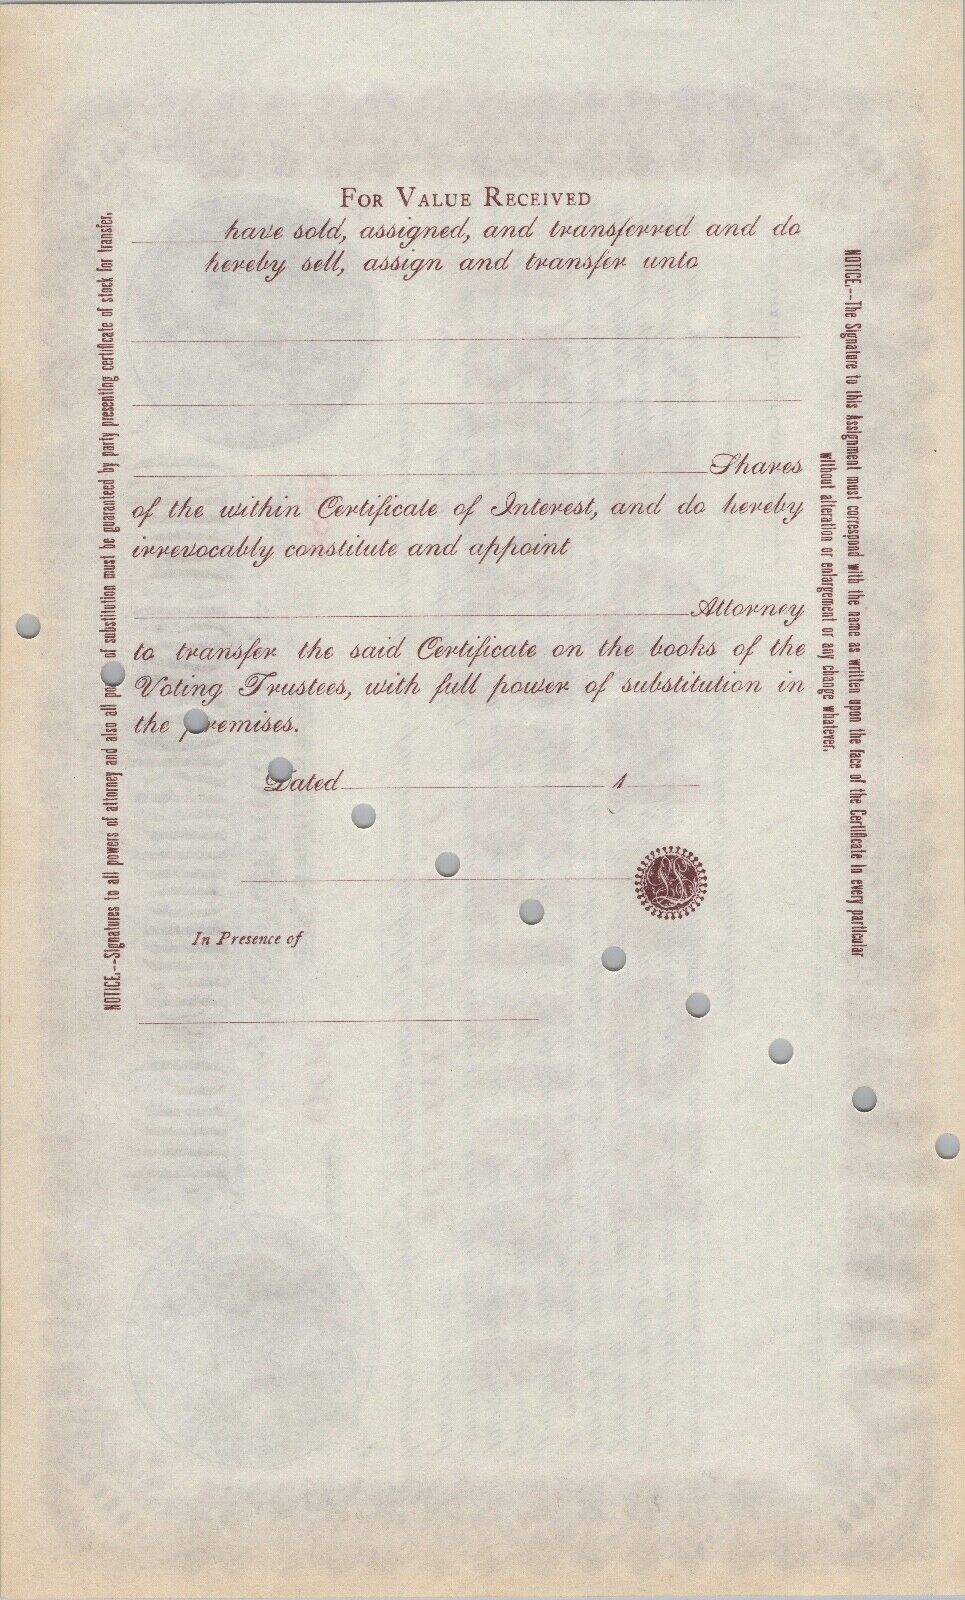 For Value Received
have sold, assigned, and transferred and do
hereby sell, assign and transfer unto
Shares
of the within Certificate of Interest, and do hereby
irrevocably constitute and appoint
Attorney
to transfer the said Certificate on the books of the
Voting Trustees, with full power of substitution in
the premises.
Dated 1
LS
In Presence of
NOTICE.--Signatures to all powers of attorney and also all po of substitution must be guaranteed by party presenting certificate of stock for transfer.
NOTICE.--The Signature to this Assignment must correspond with the name as written upon the face of the Certificate in every particular
without alteration or enlargement or any change whatever.